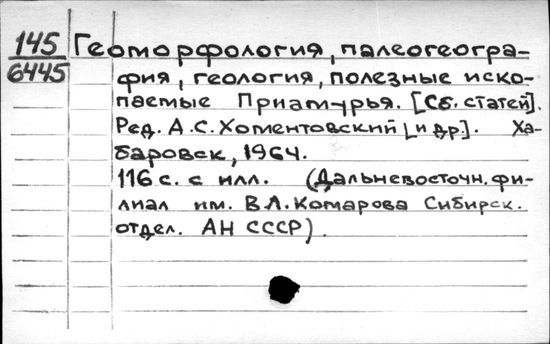 145
6445
Геоморфология, палеогеогра-
фия, геология, полезные иско-
паемые Приамурья. [Сб. статей].
Ред. А.С. Хоментовский [и др.]. Ха-
баровск, 1964.
116 с. с илл. (Дальневосточн. фи-
лиал им. В.Л. Комарова Сибирск.
отдел. АН СССР).